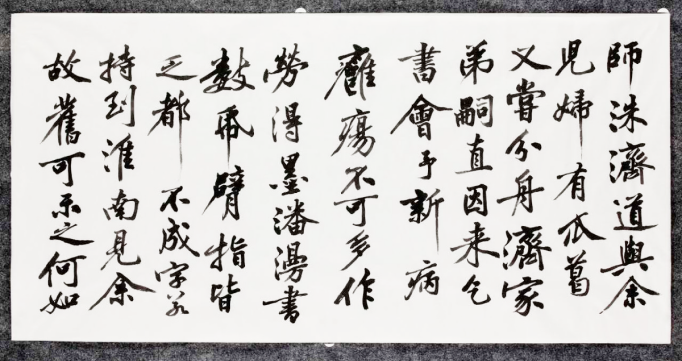 師洙濟道與余
兒婦有瓜葛
又嘗分舟濟家
弟嗣直因来乞
書會予新病
癰瘍不可多作
勞得墨潘漫書
數帋臂指皆
乏都不成字若
持到淮南見余
故舊可示之何如